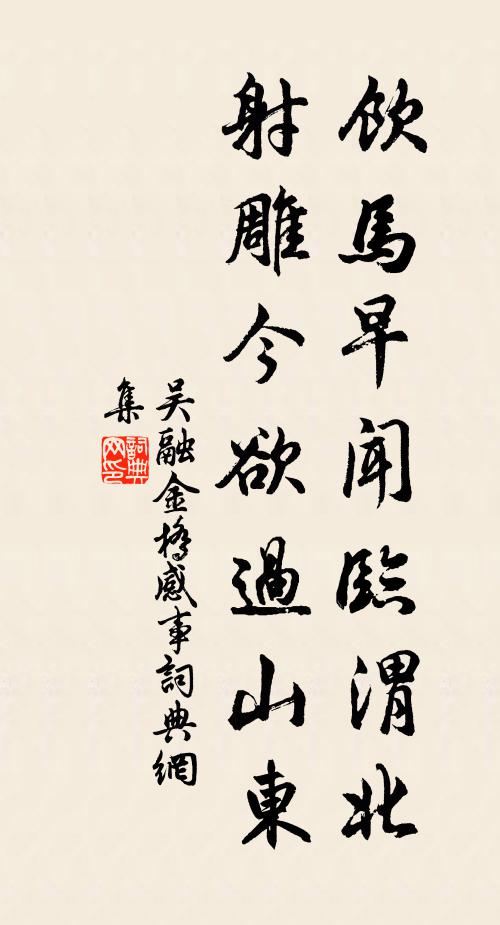 飲馬早聞臨渭北
射雕今欲過山東
吳融金橋感事詞典網
集
詞典網印